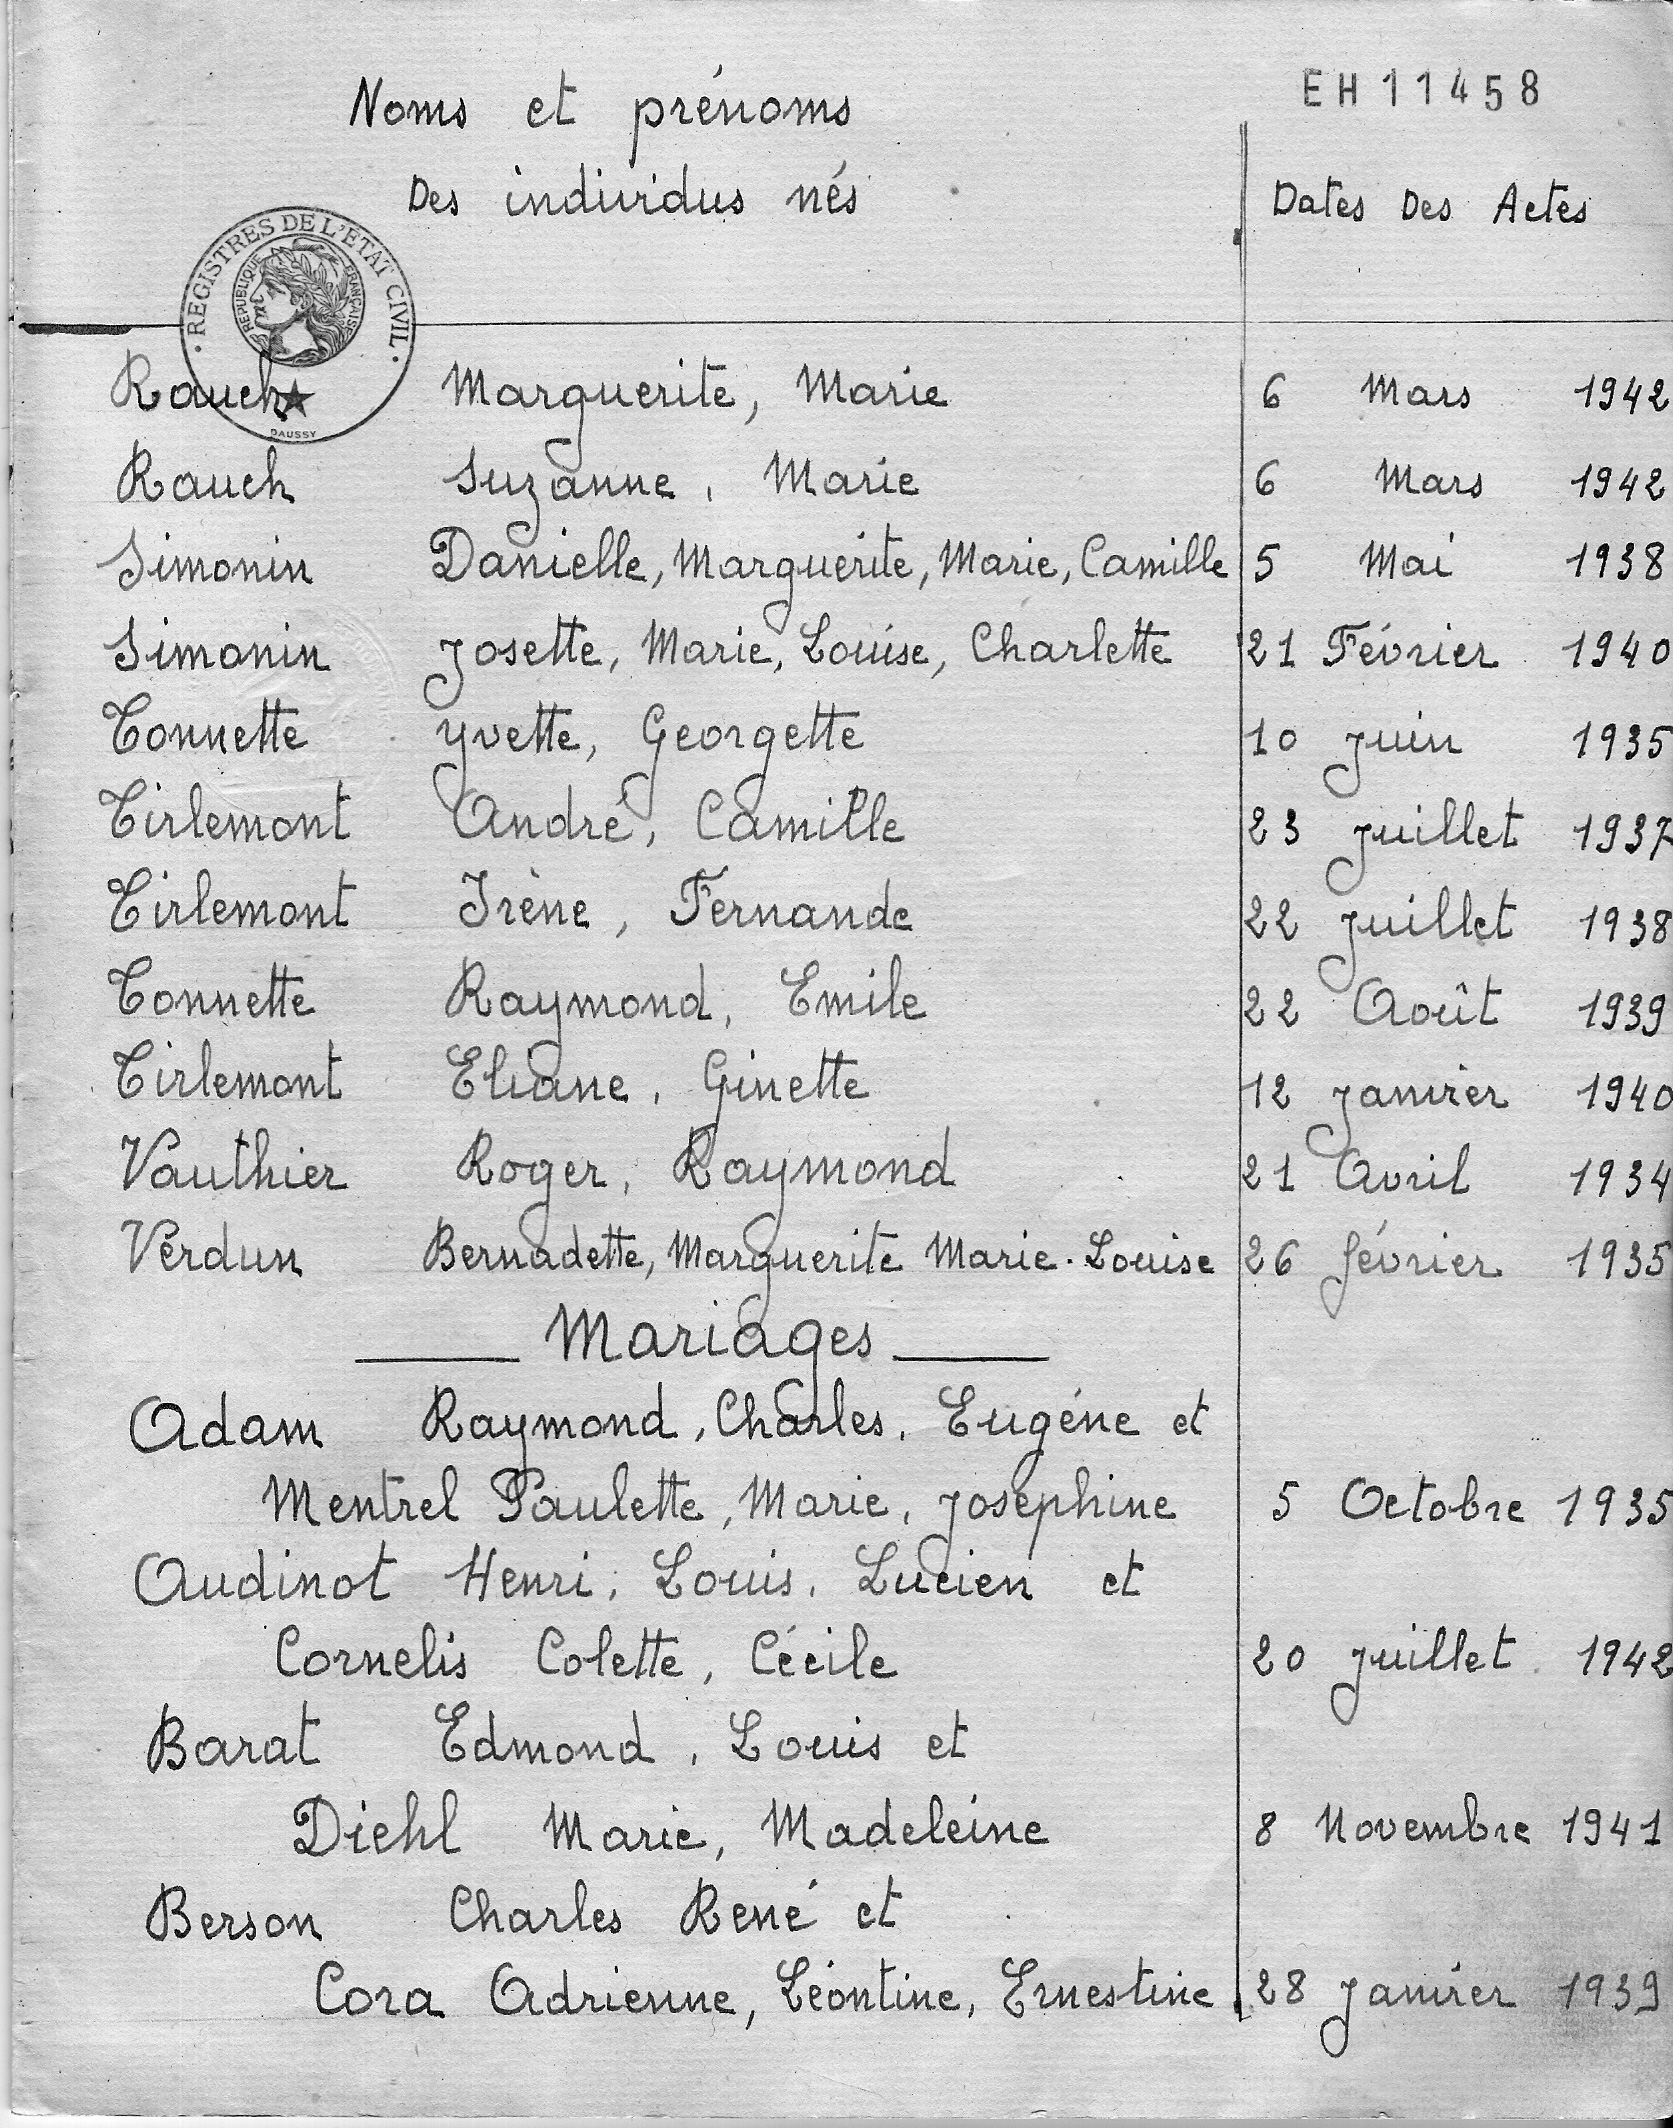 EH11458
Noms et prénoms
Des individus nés Dates Des Actes
· REGISTRES DE L'ETAT CIVIL ·
REPUBLIQUE FRANÇAISE
DAUSSY
Rauch Marguerite, Marie 6 Mars 1942
Rauch Suzanne, Marie 6 Mars 1942
Simonin Danielle, Marguerite, Marie, Camille 5 Mai 1938
Simonin Josette, Marie, Louise, Charlette 21 Février 1940
Tonnette Yvette, Georgette 10 Juin 1935
Tirlemont André, Camille 23 Juillet 1937
Tirlemont Irène, Fernande 22 Juillet 1938
Tonnette Raymond, Emile 22 Août 1939
Tirlemont Eliane, Ginette 12 Janvier 1940
Vauthier Roger, Raymond 21 Avril 1934
Verdun Bernadette, Marguerite Marie-Louise 26 février 1935
Mariages
Adam Raymond, Charles, Eugéne et
Mentrel Paulette, Marie, Joséphine 5 Octobre 1935
Audinot Henri, Louis, Lucien et
Cornelis Colette, Cécile 20 Juillet 1942
Barat Edmond, Louis et
Diehl Marie, Madeleine 8 Novembre 1941
Berson Charles René et
Cora Adrienne, Léontine, Ernestine 28 Janvier 1939